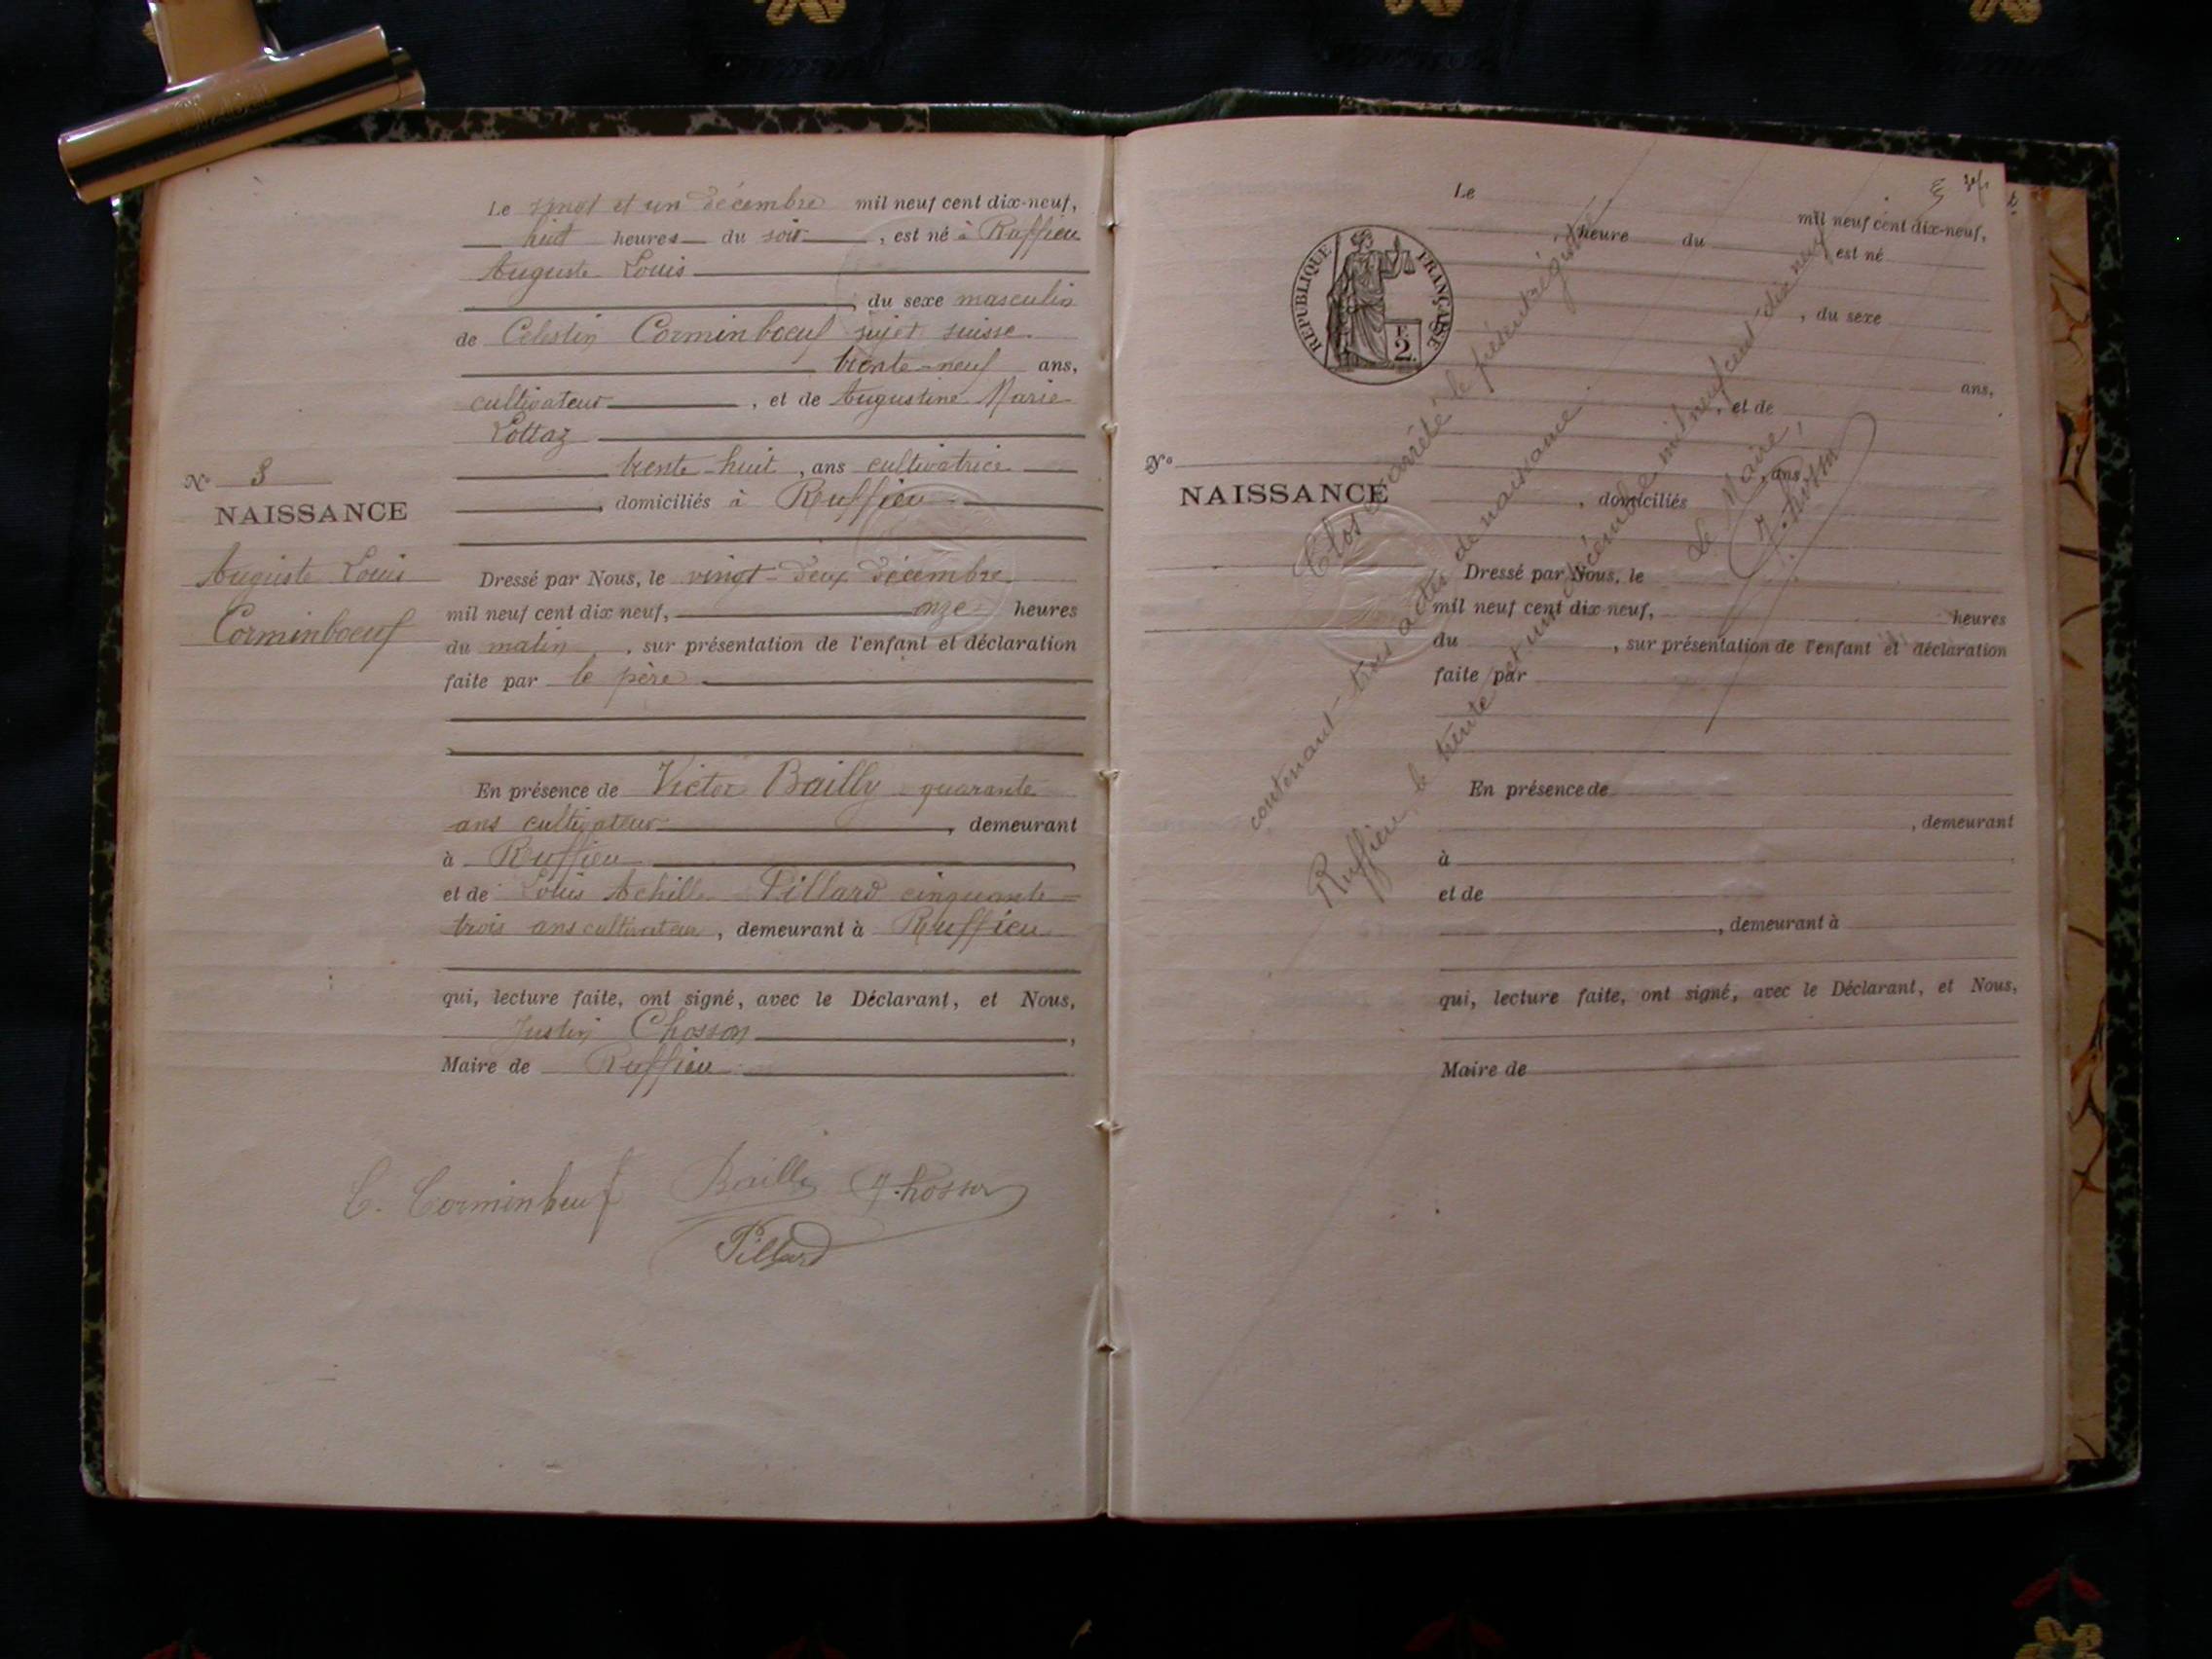 Le vingt et un décembre mil neuf cent dix-neuf,
huit heures du soir, est né à Ruffieu
Auguste Louis
, du sexe masculin
de Célestin Corminboeuf sujet suisse
trente-neuf ans,
cultivateur, et de Augustine Marie
Lottaz
trente-huit, ans cultivatrice
, domiciliés à Ruffieu
N° 3
NAISSANCE
Auguste Louis
Corminboeuf
Dressé par Nous, le vingt-deux décembre
mil neuf cent dix neuf, onze heures
du matin, sur présentation de l'enfant et déclaration
faite par le père
En présence de Victor Bailly quarante
ans cultivateur, demeurant
à Ruffieu,
et de Louis Achille Pillard cinquante-
trois ans cultivateur, demeurant à Ruffieu
qui, lecture faite, ont signé, avec le Déclarant, et Nous,
Justin Chosson,
Maire de Ruffieu
C. Corminbeuf Bailly J. Chosson
Pillard
Le
mil neuf cent dix-neuf,
, heure du est né
RÉPUBLIQUE FRANÇAISE
2
, du sexe
ans,
, et de
, ans
N°
NAISSANCE
, domiciliés
Dressé par Nous, le
mil neuf cent dix-neuf, heures
du , sur présentation de l'enfant et déclaration
faite par
En présence de
, demeurant
à
et de
, demeurant à
qui, lecture faite, ont signé, avec le Déclarant, et Nous,
Maire de
Clos et arrêté le présent régistre
contenant trois actes de naissance
Ruffieu, le trente et un décembre mil neuf cent dix neuf
Le Maire,
J. Chosson